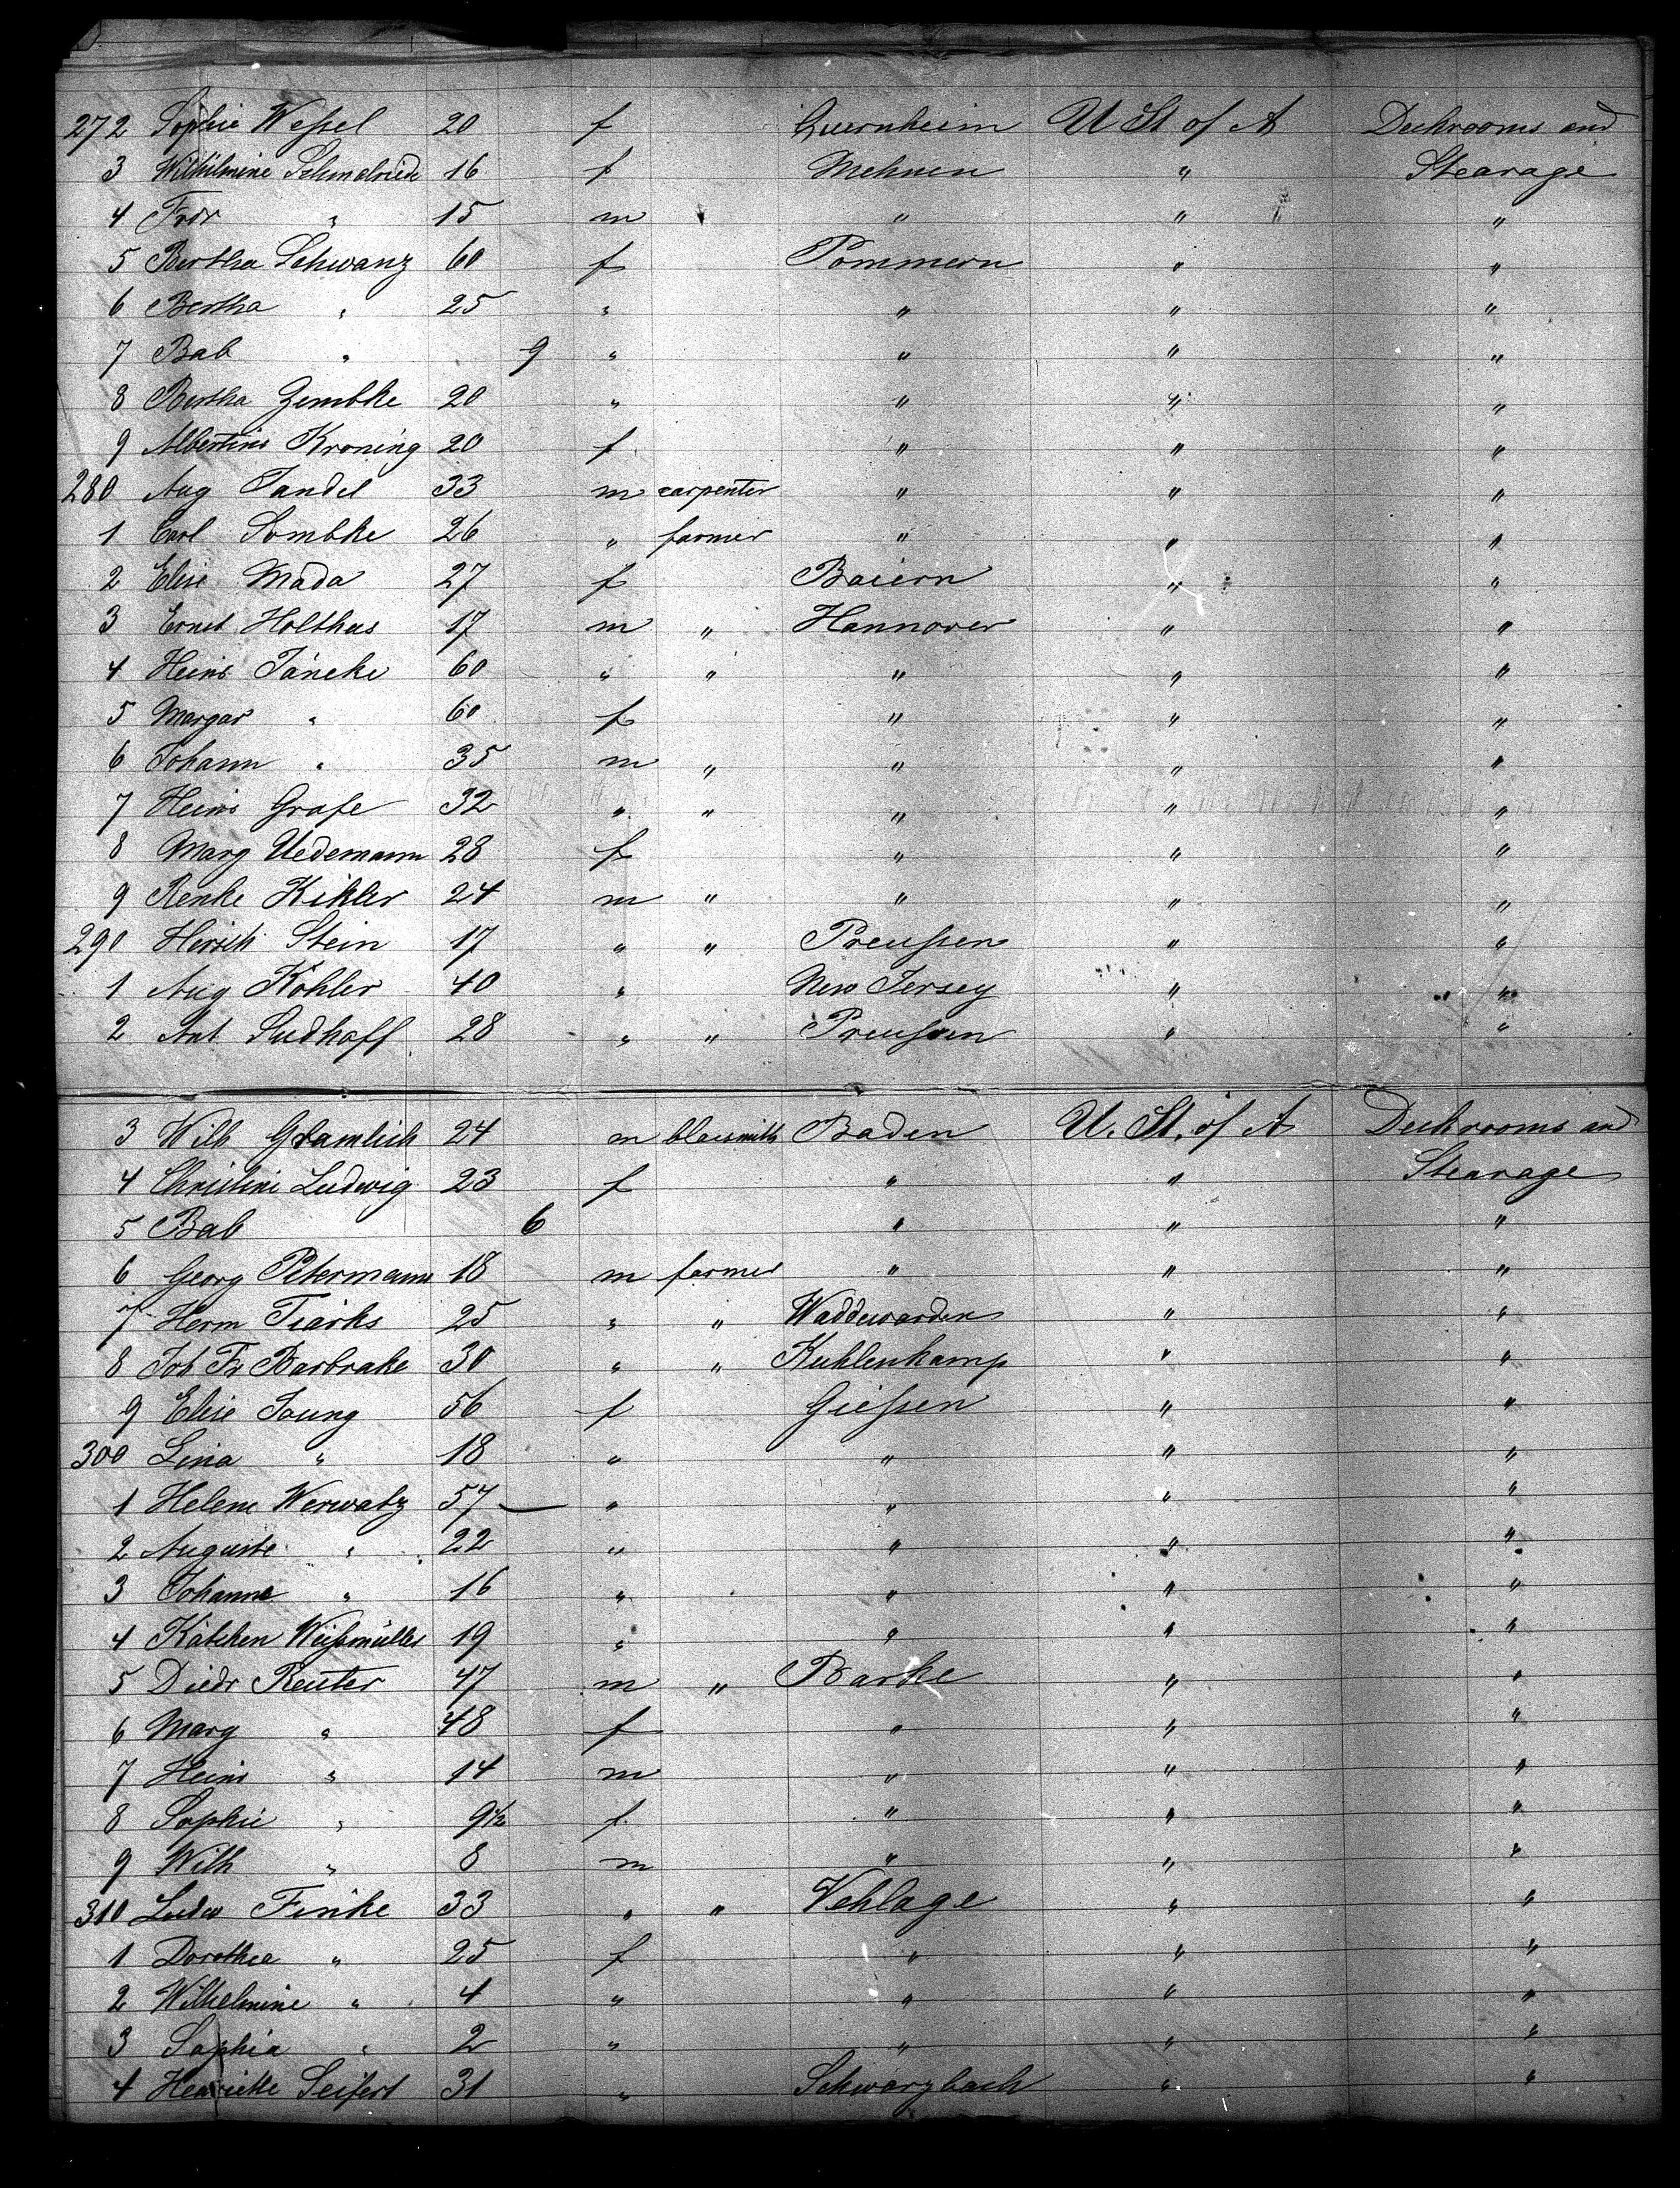 272 Sophie Weſsel 20 f Quernheim U St of A Deckrooms and
3 Wilhelmine Schmelriede 16 f Mehnen " Stearage
4 Frdr " 15 m " " "
5 Bertha Schwanz 60 f Pommern " "
6 Bertha " 25 " " " "
7 Bab " 9 " " " "
8 Bertha Zembke 20 " " " "
9 Albertine Kroning 20 f " " "
280 Aug Tandel 33 m carpenter " " "
1 Carl Sombke 26 " farmer " " "
2 Elise Mada 27 f Baiern " "
3 Ernst Holthus 17 m " Hannover " "
4 Heinr Jäneke 60 " " " " "
5 Margar " 60 f " " "
6 Johann " 35 m " " " "
7 Heinr Grafe 32 " " " " "
8 Marg Uedemann 28 f " " "
9 Renke Kikler 24 m " " " "
290 Hirsch Stein 17 " " Preuſsen " "
1 Aug Köhler 40 " New Jersey " "
2 Ant Sudhoff 28 " " Preuſsen " "
3 Wilh Gramlich 24 m blacsmith Baden U. St. of A Deckrooms and
4 Christine Ludwig 23 f " " Stearage
5 Bab 6 " " "
6 Georg Petermann 18 m farmer " " "
7 Herm Tiarks 25 " " Waddewarden " "
8 Joh Fr Barbrake 30 " " Kuhlenkamp " "
9 Elise Joung 56 f Gieſsen " "
300 Lina " 18 " " " "
1 Helene Werwatz 57 " " " "
2 Auguste " 22 " " " "
3 Johanne " 16 " " " "
4 Kätchen Weiſsmüller 19 " " " "
5 Diedr Reuter 47 m " Barke " "
6 Marg " 48 f " " "
7 Heinr " 14 m " " "
8 Sophie " 9½ f " " "
9 Wilh " 8 m " " "
310 Ludw Finke 33 " " Vehlage " "
1 Dorothea " 25 f " " "
2 Wilhelmine " 4 " " " "
3 Sophia " 2 " " " "
4 Henriette Seifert 31 " Schwarzbach " "